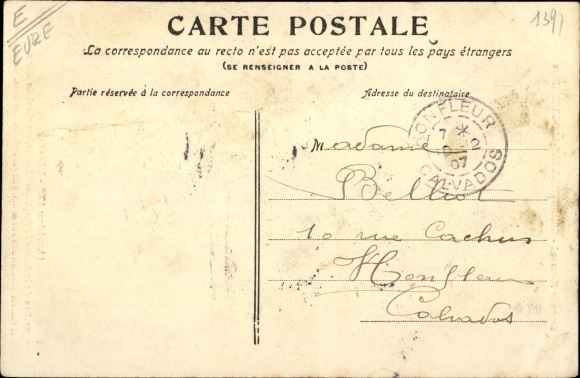 E
EURE
1391
CARTE POSTALE
La correspondance au recto n'est pas acceptée par tous les pays étrangers
(SE RENSEIGNER A LA POSTE)
Partie réservée à la correspondance
Adresse du destinataire
HONFLEUR
7 * 2
07
CALVADOS
Madame
Belliot
10 rue Cachin
Honfleur
Calvados